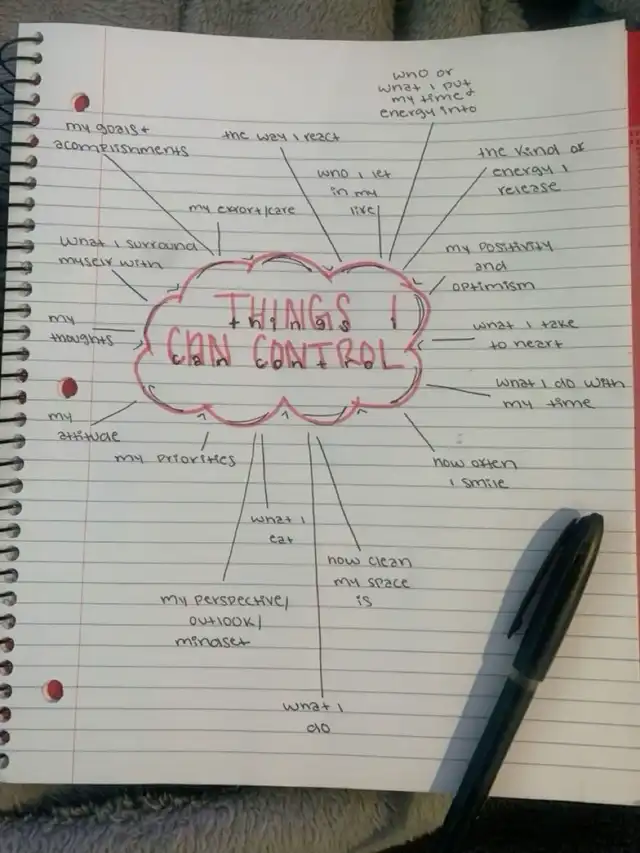 who or
what i put
my time +
energy into
my goals +
acomplishments
the way i react
the kind of
energy i
release
who i let
in my
life
my effort/care
what i surround
myself with
my positivity
and
optimism
THINGS I
things i
CAN CONTROL
can control
my
thoughts
what i take
to heart
what i do with
my time
my
attitude
my priorities
how often
i smile
what i
eat
how clean
my space
is
my perspective/
outlook/
mindset
what i
do